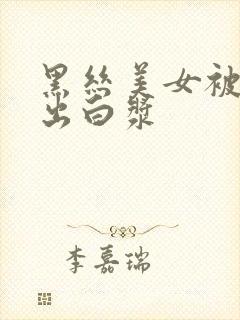 黑丝美女被
出白漿
李嘉瑞